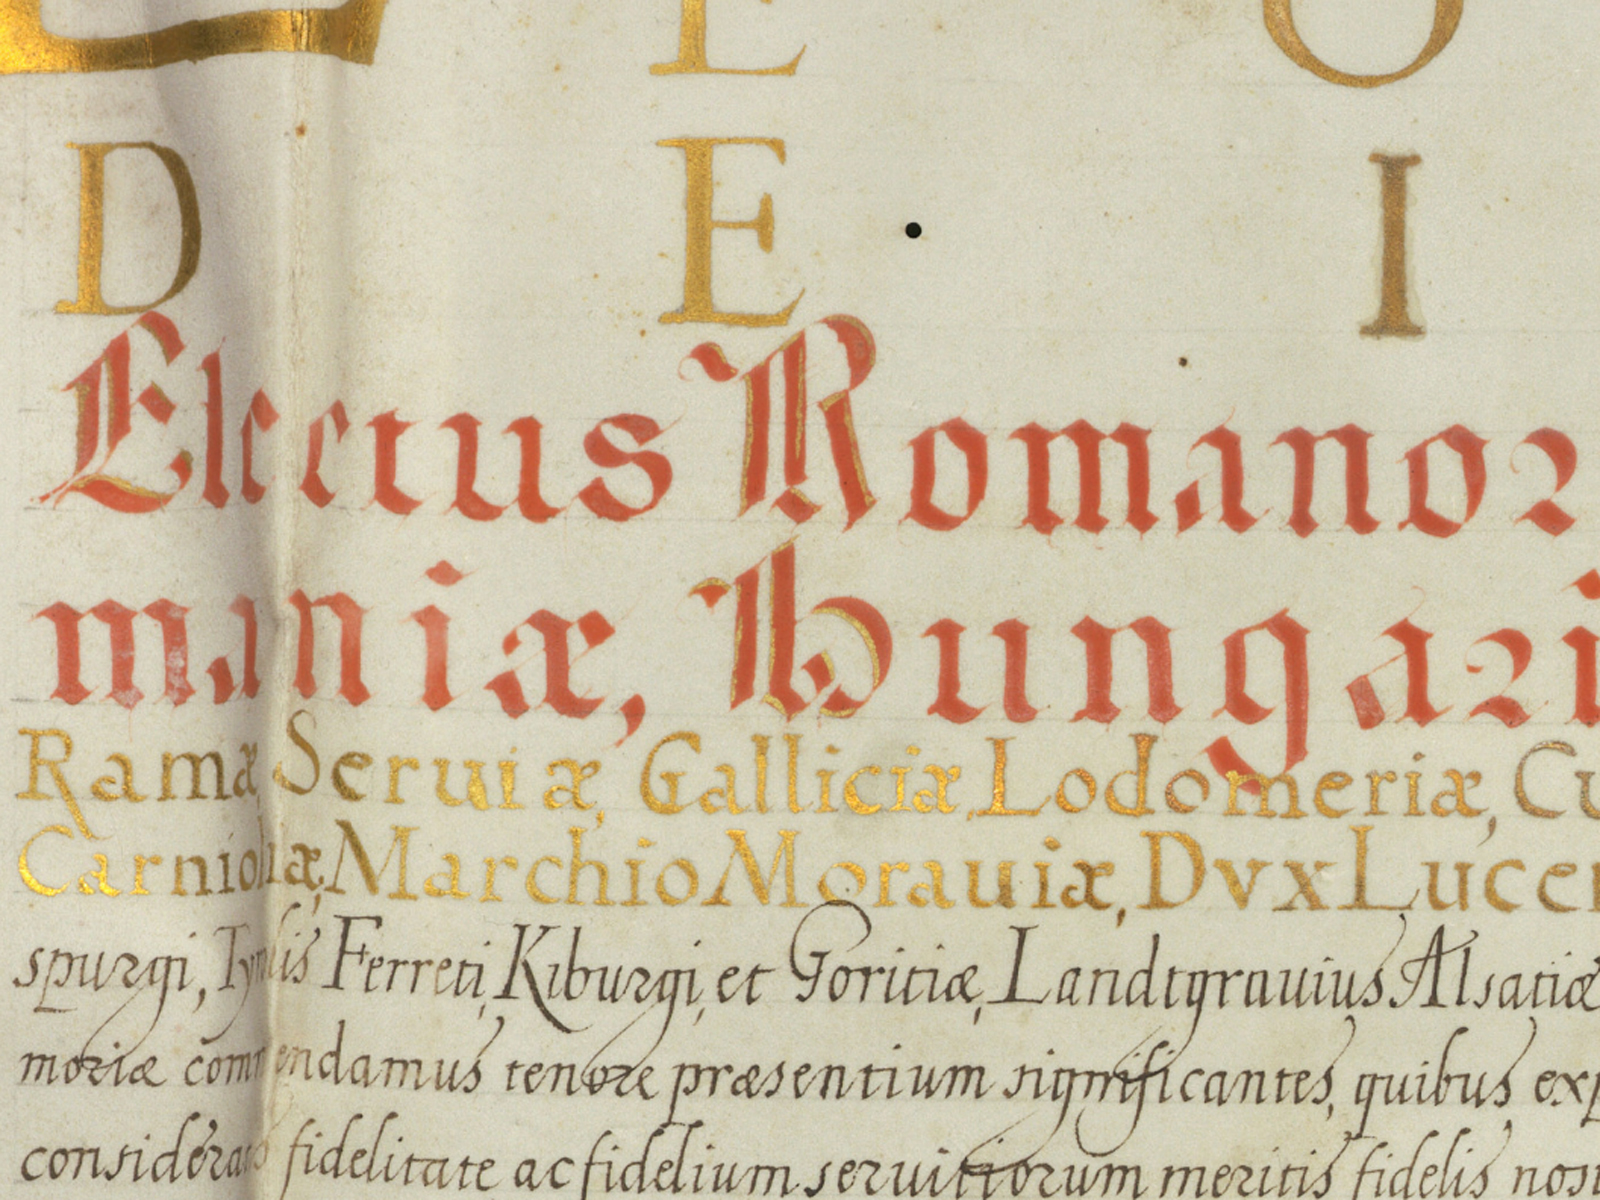 L E O
D E I
Electus Romanor
maniæ, Hungari
Ramæ, Seruiæ, Galliciæ, Lodomeriæ, Cu
Carniolæ, Marchio Morauiæ, Dvx Lucem
spurgi, Tyrolis Ferreti, Kiburgi, et Goritiæ, Landtgrauius Alsatiæ
moriæ commendamus tenore præsentium significantes, quibus exp
considerata fidelitate ac fidelium seruitiorum meritis fidelis nost